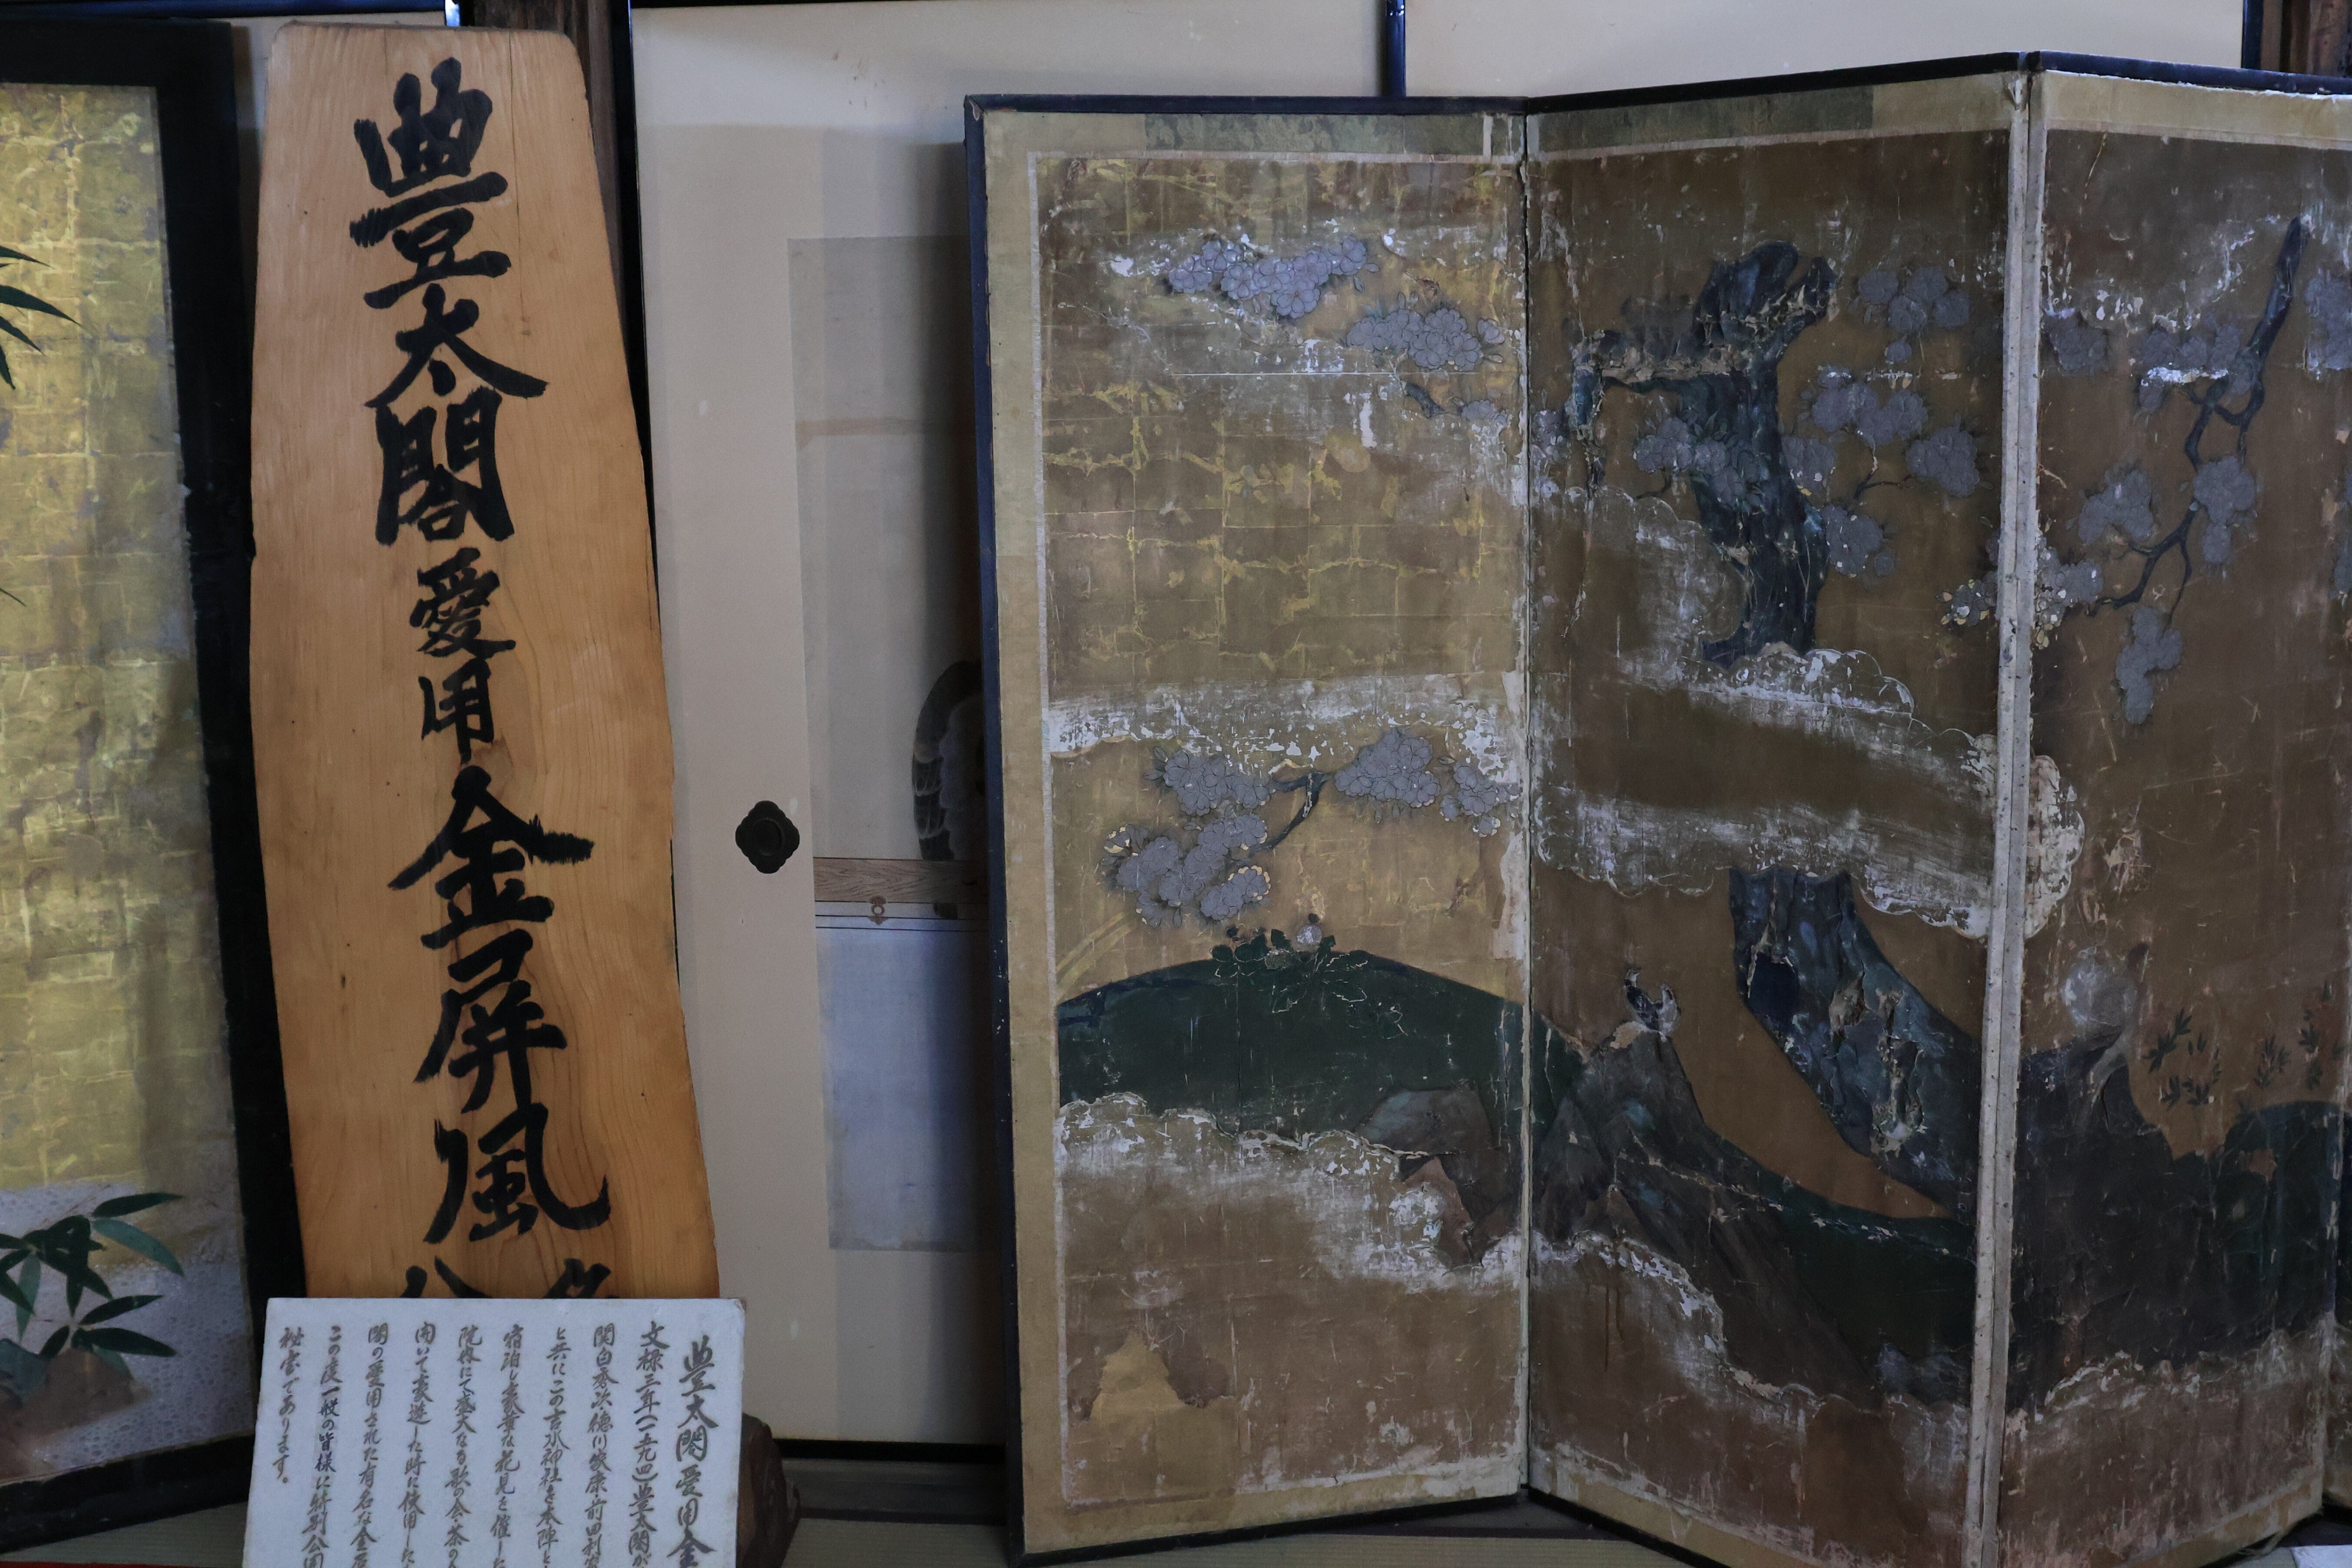 豊太閤愛用金屏風
豊太閤愛用金
文禄三年(一五九四)豊太閤が
関白秀次・徳川家康・前田利家
と共にこの吉水神社を本陣と
宿泊し豪華な花見を催した
院外にて盛大なる歌の会・茶の
開いて豪遊した時に使用した
閤の愛用された有名な金屏
この度一般の皆様に特別公開
秘宝であります。